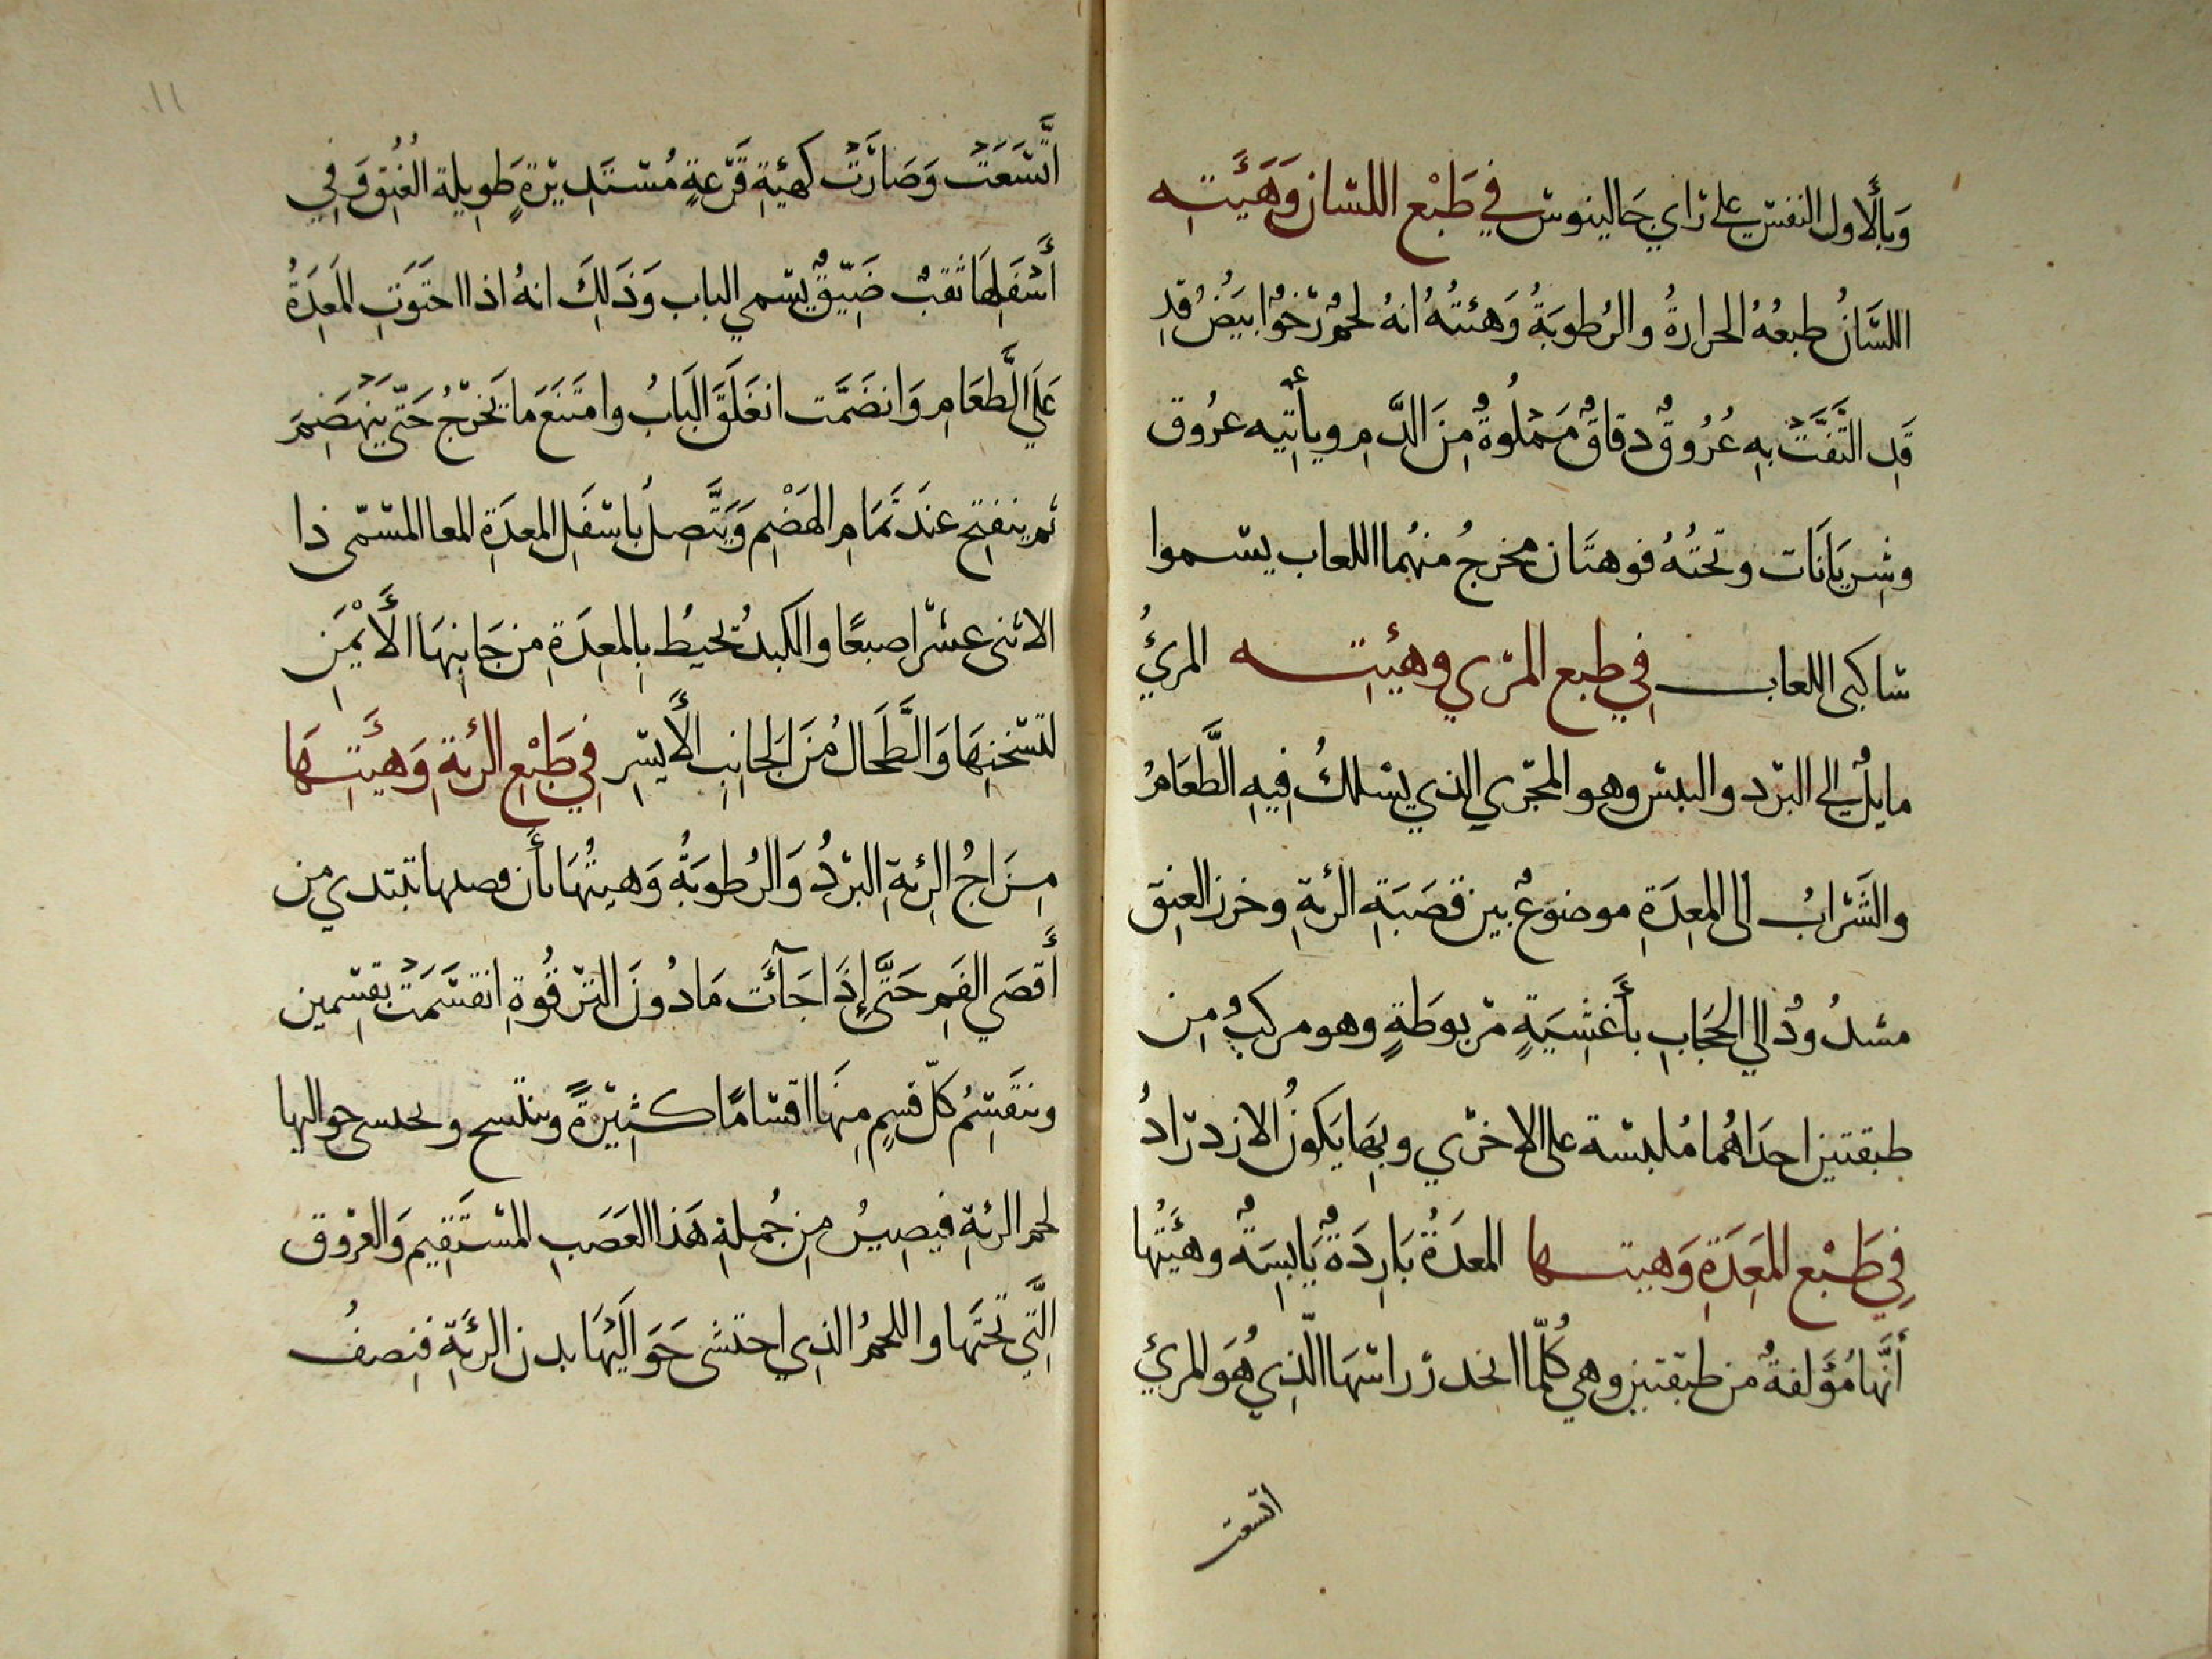 وَبِالأَول النفس علي راي جَالينوس في طَبْع اللسان وَهَيَّتِه
اللسَانُ طبعُهُ الحرارةُ والرُطوبَةُ وَهئتُهُ انهُ لحمٌ رَخوٌ ابيَضُ قدِ
قَدِ التَفَّتْ بهِ عُرُوقٌ دقاقٌ مَمْلُوةٌ مِنَ الدَّمِ ويأتِيه عرُوق
وشِريَانَات وتحتُهُ فوهتَان مخرجُ منهُما اللعاب يسموا
ساكبى اللعاب في طبع المري وهيئتِه المرئُ
مايلٌ الي البرد واليبس وهو المجري الذي يسلكُ فِيهِ الطَّعَامُ
والشَرابُ الى المعِدَةِ موضوعٌ بين قصَبَةِ الرئةِ وخرز العنِق
مشدُودٌ الي الحجَابِ بأَغشِيَةٍ مربوطَةٍ وهو مركبٌ مِن
طبقتين احدَاهُما مُلبسة على الاخري وبِهَا يَكونُ الازدرَادُ
فِي طَبْع المَعِدَةِ وَهيتها المعدَةُ بَارِدَةٌ يَابِسَةٌ وهيَتُها
أنَّها مُؤَلفةٌ من طبقتين وهي كُلّما انحدر راسهَا الّذِي هُوَ المرئ
اتسعت
١١
اتَّسَعَتْ وَصَارَتْ كهيْةِ قَرْعةٍ مُستَدِيرَةٍ طَويلة العُنِق وَفي
أَسْفَلِهَا ثقبٌ ضَيّقٌ يسمي الباب وَذَلِكَ انهُ اذا احتَوَتِ المَعِدَةُ
عَلَي الَّطعَامِ وَانضَمَّت انغَلَقَ البَابُ وامتَنَعَ مَا يَخرُجُ حَتّي يَنْهَضِمَ
ثم ينفتِح عندَ تَمَامِ الهَضْمِ وَيَتَّصِلُ باسْفَلِ المعِدَةِ المعا المسَمّى ذا
الاثنى عشر اصبعًا والكبدُ تُحيطُ بِالمعِدَةِ مِن جَانِبِهَا الأَيْمَنِ
لتسْخنِهَا وَالَّطحَالُ مِنَ الجَانِبِ الأَيسَرِ فِي طَبْعِ الرئةِ وَهَيّتِهَا
مِزَاجُ الرئةِ البَرْدُ وَالرُطوبَةُ وَهيئُهَا بأَن قصبها تبتدي من
أَقصَي الفَمِ حَتَّي إِذَا جَآئَت مَا دُونَ التَرْقُوةِ انقسَمَتْ بقِسمين
وينقَسِمُ كلّ قسِمٍ مِنهَا اقسَامًا كثِيَرةً حواليها
لحم الرئةِ فيصِيرُ مِن جُملةِ هَذا العَصَبِ المُستَقِيم وَالعرُوق
الِّتَي تحتَها واللحمُ الذِي احتشَى حَوَالَيْهَا بدن الرئَةِ فنِصفُ